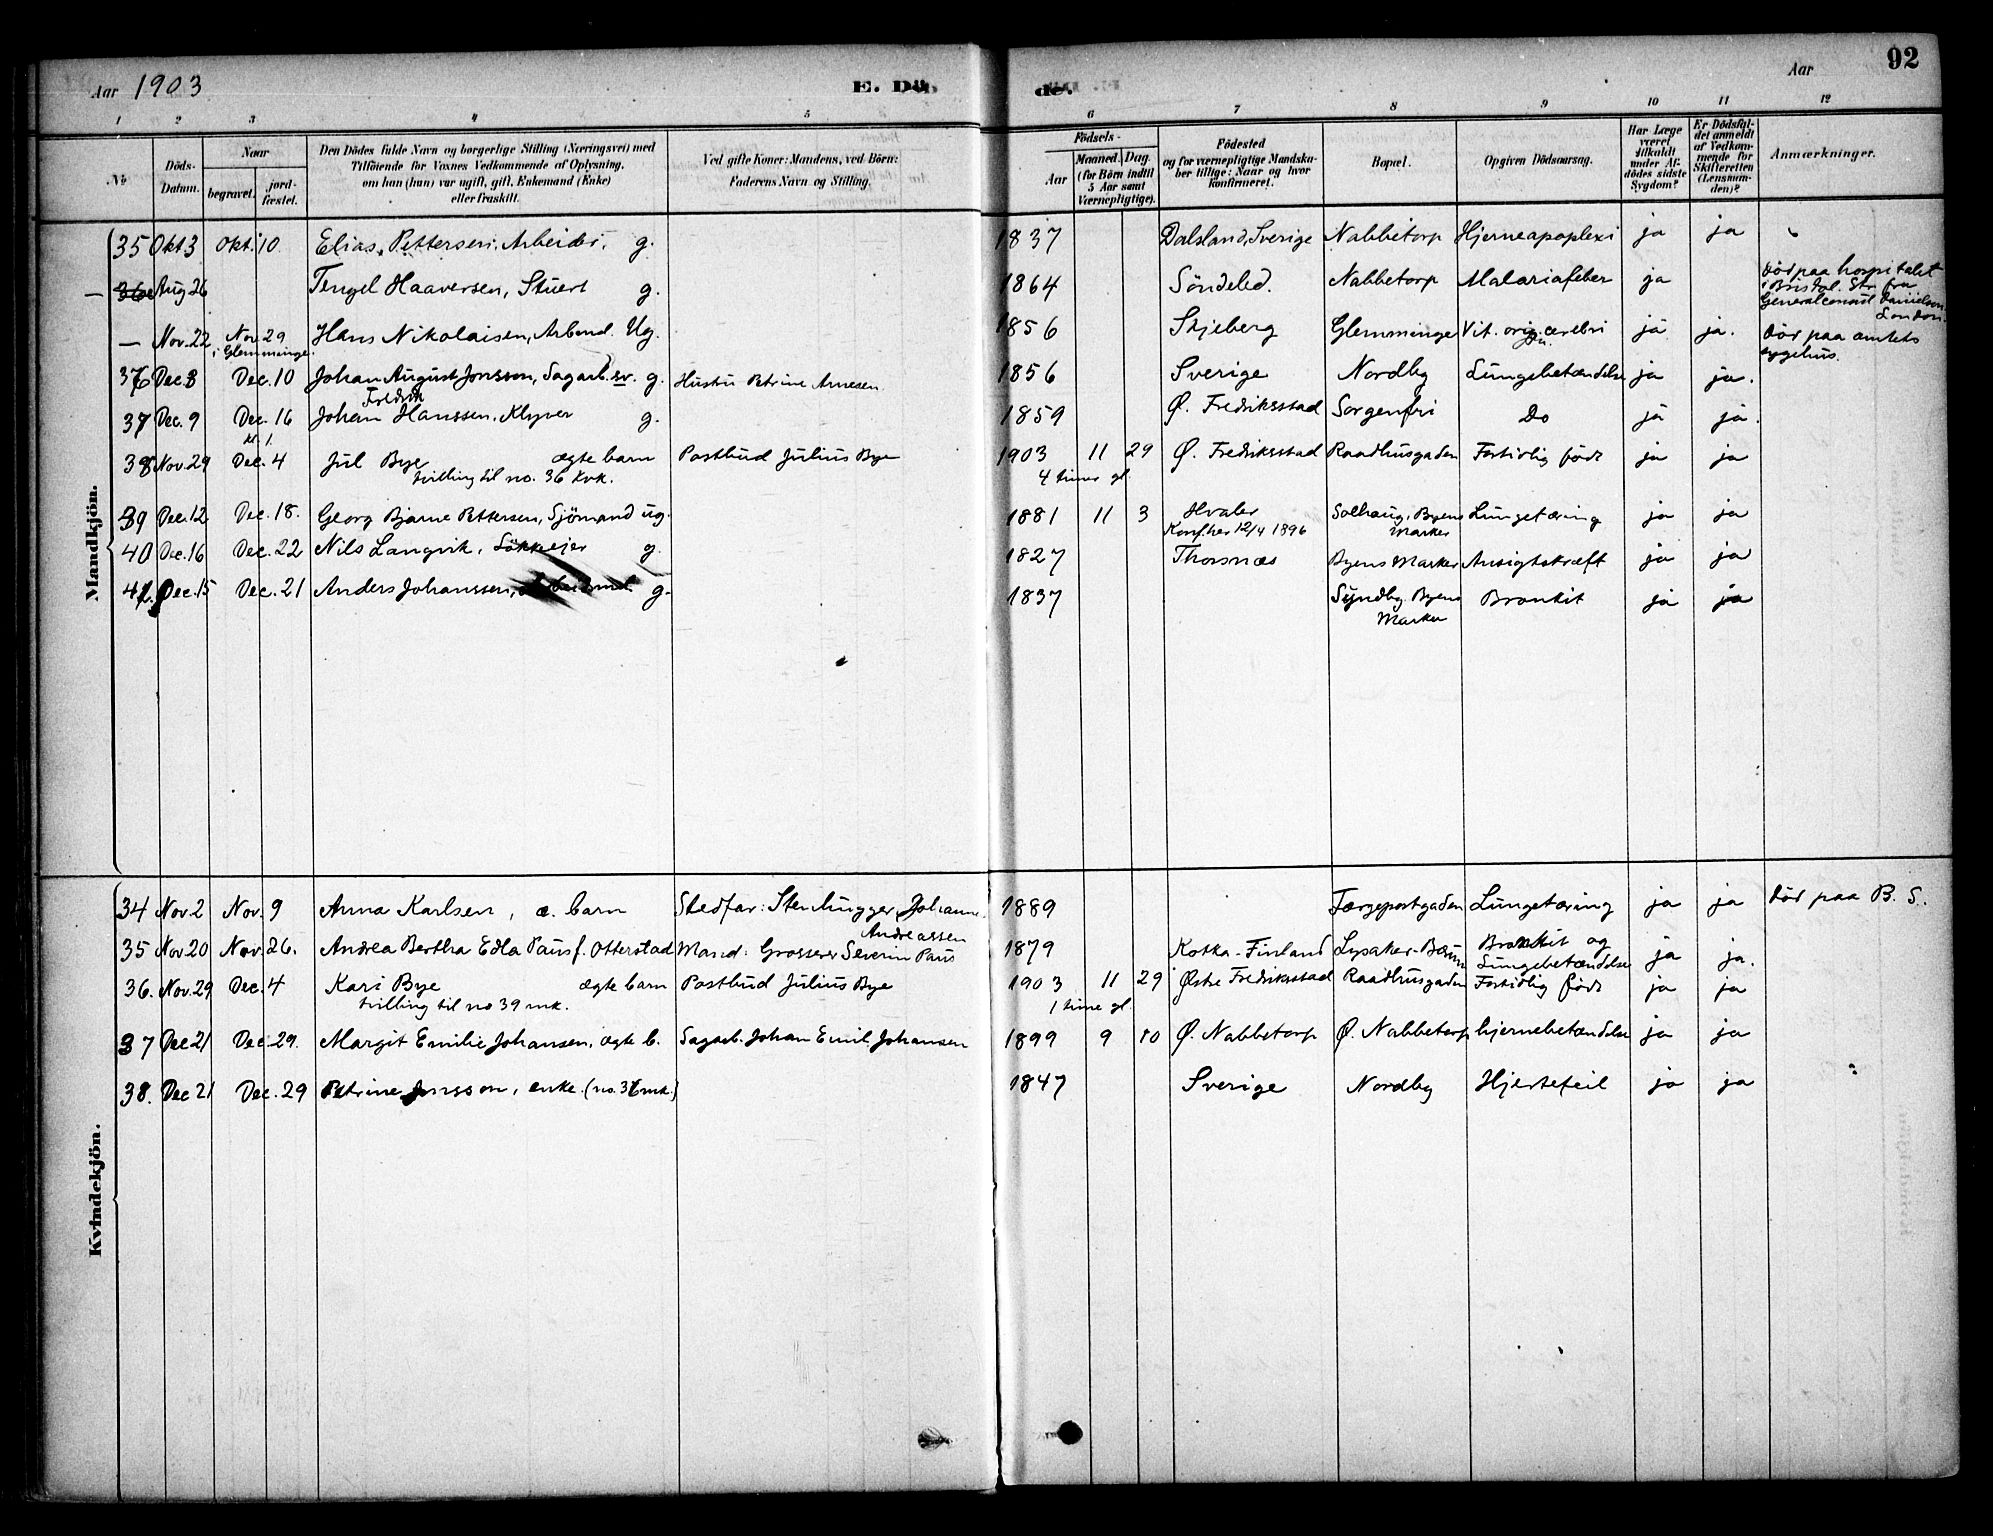 Aar 1903 E. Dö- de. Aar 92
1 2 3 4 5 6 7 8 9 10 11 12
No
Döds-Datum.
Naar
begravet.
jord-fæstet.
Den Dödes fulde Navn og borgerlige Stilling (Næringsvei) med
Tilföiende for Voxnes Vedkommende af Oplysning,
om han (hun) var ugift, gift, Enkemand (Enke)
eller fraskilt.
Ved gifte Koner: Mandens, ved Börn:
Faderens Navn og Stilling.
Födsels-
Aar
Maaned. Dag.
(for Börn indtil
5 Aar samt
Værnepligtige).
Födested
og for værnepligtige Mandska-
ber tillige: Naar og hvor
konfirmeret.
Bopæl.
Opgiven Dödsaarsag.
Har Læge
været
tilkaldt
under Af-
dödes sidste
Sygdom?
Er Dödsfal-
det anmeldt
af Vedkom-
mende for
Skifteretten
(Lensman-
den)?
Anmærkninger.
Mandkjön.
35 Okt 3 Okt. 10 Elias Pettersen, Arbeider, g. 1837 Dalsland, Sverige Nabbetorp Hjerneapoplexi ja ja
— 36 Aug 26 Tengel Haaversen, Stuert g. 1864 Söndeled. Nabbetorp Malariafeber ja Död paa hospitalet
i Bristol. Skr fra
Generalconsul Danielsen
London.
— Nov. 22 Nov. 29 Hans Nikolaisen, Arbmd. Ug. 1856 Skjeberg Glemminge Vit. orig. cerebri ja ja. Död paa amtets
i Glemminge. sygehus.
36 Dec. 8 Dec. 10 Johan August Jonsson, Sagarb. sv. g. Hustru Petrine Arnesen 1856 Sverige Nordby Lungebetændelse ja ja.
Fredrik
37 Dec. 9 Dec. 16 Johan Hanssen, Klyver g. 1859 Ø. Fredriksstad Sorgenfri Do ja ja.
kl. 1.
38 Nov. 29 Dec. 4 Jul Bye ægte barn Postbud Julius Bye 1903 11 29 Ø. Fredriksstad Raadhusgaden Fortidlig födt ja ja
tvilling til no. 36 kvk. 4 timer gl.
39 Dec. 12 Dec. 18. Georg Bjarne Pettersen, Sjömand ug. 1881 11 3 Hvaler Solhaug, Byens Lungetæring ja ja
Konf. her 12/4 1896 Marker
40 Dec. 16 Dec. 22 Nils Langvik, g. 1827 Thorsnæs Byens Marker Ansigtskræft ja ja
41. Dec. 15 Dec. 21 Anders Johanssen, Arbeidsmd. g. 1837 Syndby Byens Bronkit ja ja
Marker
Kvindekjön.
34 Nov. 2 Nov. 9 Anna Karlsen, æ. barn Stedfar: Stenhugger Johannes 1889 Færgeportgaden Lungetæring ja ja Död paa B. S.
Andreassen
35 Nov. 20 Nov. 26. Andrea Bertha Edla Paus f. Otterstad Mand: Grosserer Severin Paus 1879 Kotka - Finland Lysaker - Bærum Bronkit og ja ja.
Lungebetændelse
36. Nov. 29 Dec. 4 Kari Bye ægte barn Postbud Julius Bye 1903 11 29 Østre Fredriksstad Raadhusgaden Fortidlig födt ja ja
tvilling til no 39 mk. 1 time gl.
37 Dec 21 Dec. 29. Margit Emilie Johansen, ægte b. Sagarb. Johan Emil Johansen 1899 9 10 Ø. Nabbetorp Ø. Nabbetorp hjernebetændelse ja ja
38. Dec 21 Dec. 29 Petrine Jonsson, enke. (no. 36 mk.) 1847 Sverige Nordby Hjertefeil ja ja